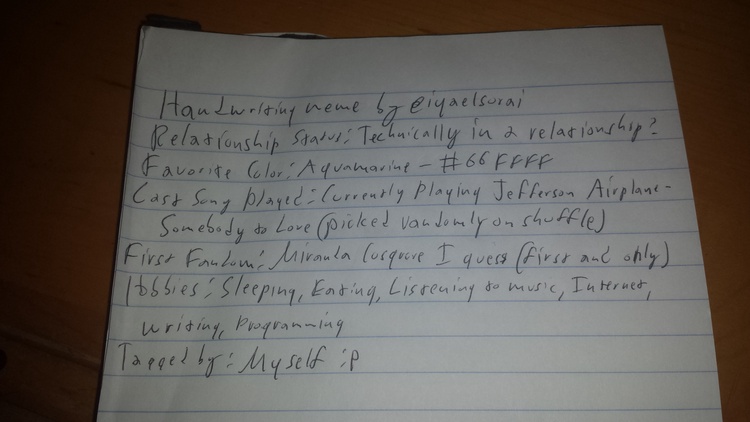 Handwriting meme by @iyaelsorai
Relationship Status: Technically in a relationship?
Favorite Color: Aquamarine - #66FFFF
Last Song Played: Currently Playing Jefferson Airplane -
Somebody to Love (picked randomly on shuffle)
First Fandom: Miranda Cosgrove I guess (first and only)
Hobbies: Sleeping, Eating, Listening to music, Internet,
writing, Programming
Tagged by: Myself :P